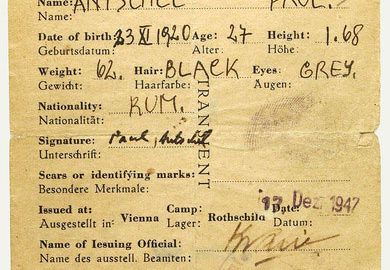 Name: ANTSCHEL PAUL.
Name:
Date of birth: 23 XI 1920 Age: 27 Height: 1.68
Geburtsdatum: Alter: Höhe:
Weight: 62. Hair: BLACK Eyes: GREY.
Gewicht: Haarfarbe: Augen:
Nationality: RUM.
Nationalität:
Signature: Paul Antschel
Unterschrift:
TRANSIENT
Scars or identifying marks:
Besondere Merkmale:
Issued at: Vienna Camp: Rothschild Date: 17 Dez. 1947
Ausgestellt in: Lager: Datum:
Name of Iesuing Official:
Name des ausstell. Beaniten: